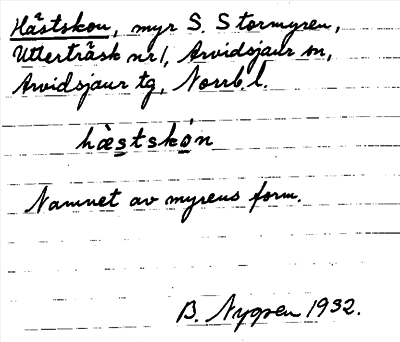 Hästskon, myr S. Stormyren,
Utterträsk nr 1, Arvidsjaur sn,
Arvidsjaur tg, Norrb. l.
hæ̀stskón
Namnet av myrens form.
B. Nygren 1932.